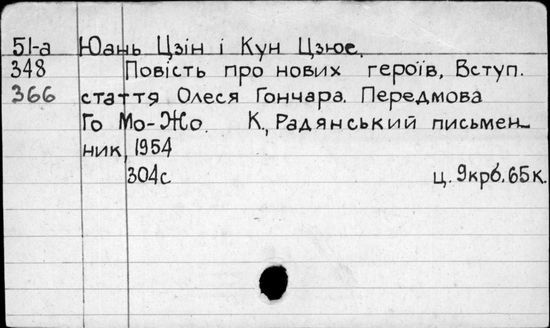 51-а Юань Цзін і Кун Цзюе.
348 Повість про нових героїв, Вступ.
366 стаття Олеся Гончара. Передмова
Го Мо-Жо. К., Радянський письмен-
ник, 1954
304с ц. 9крб. 65к.